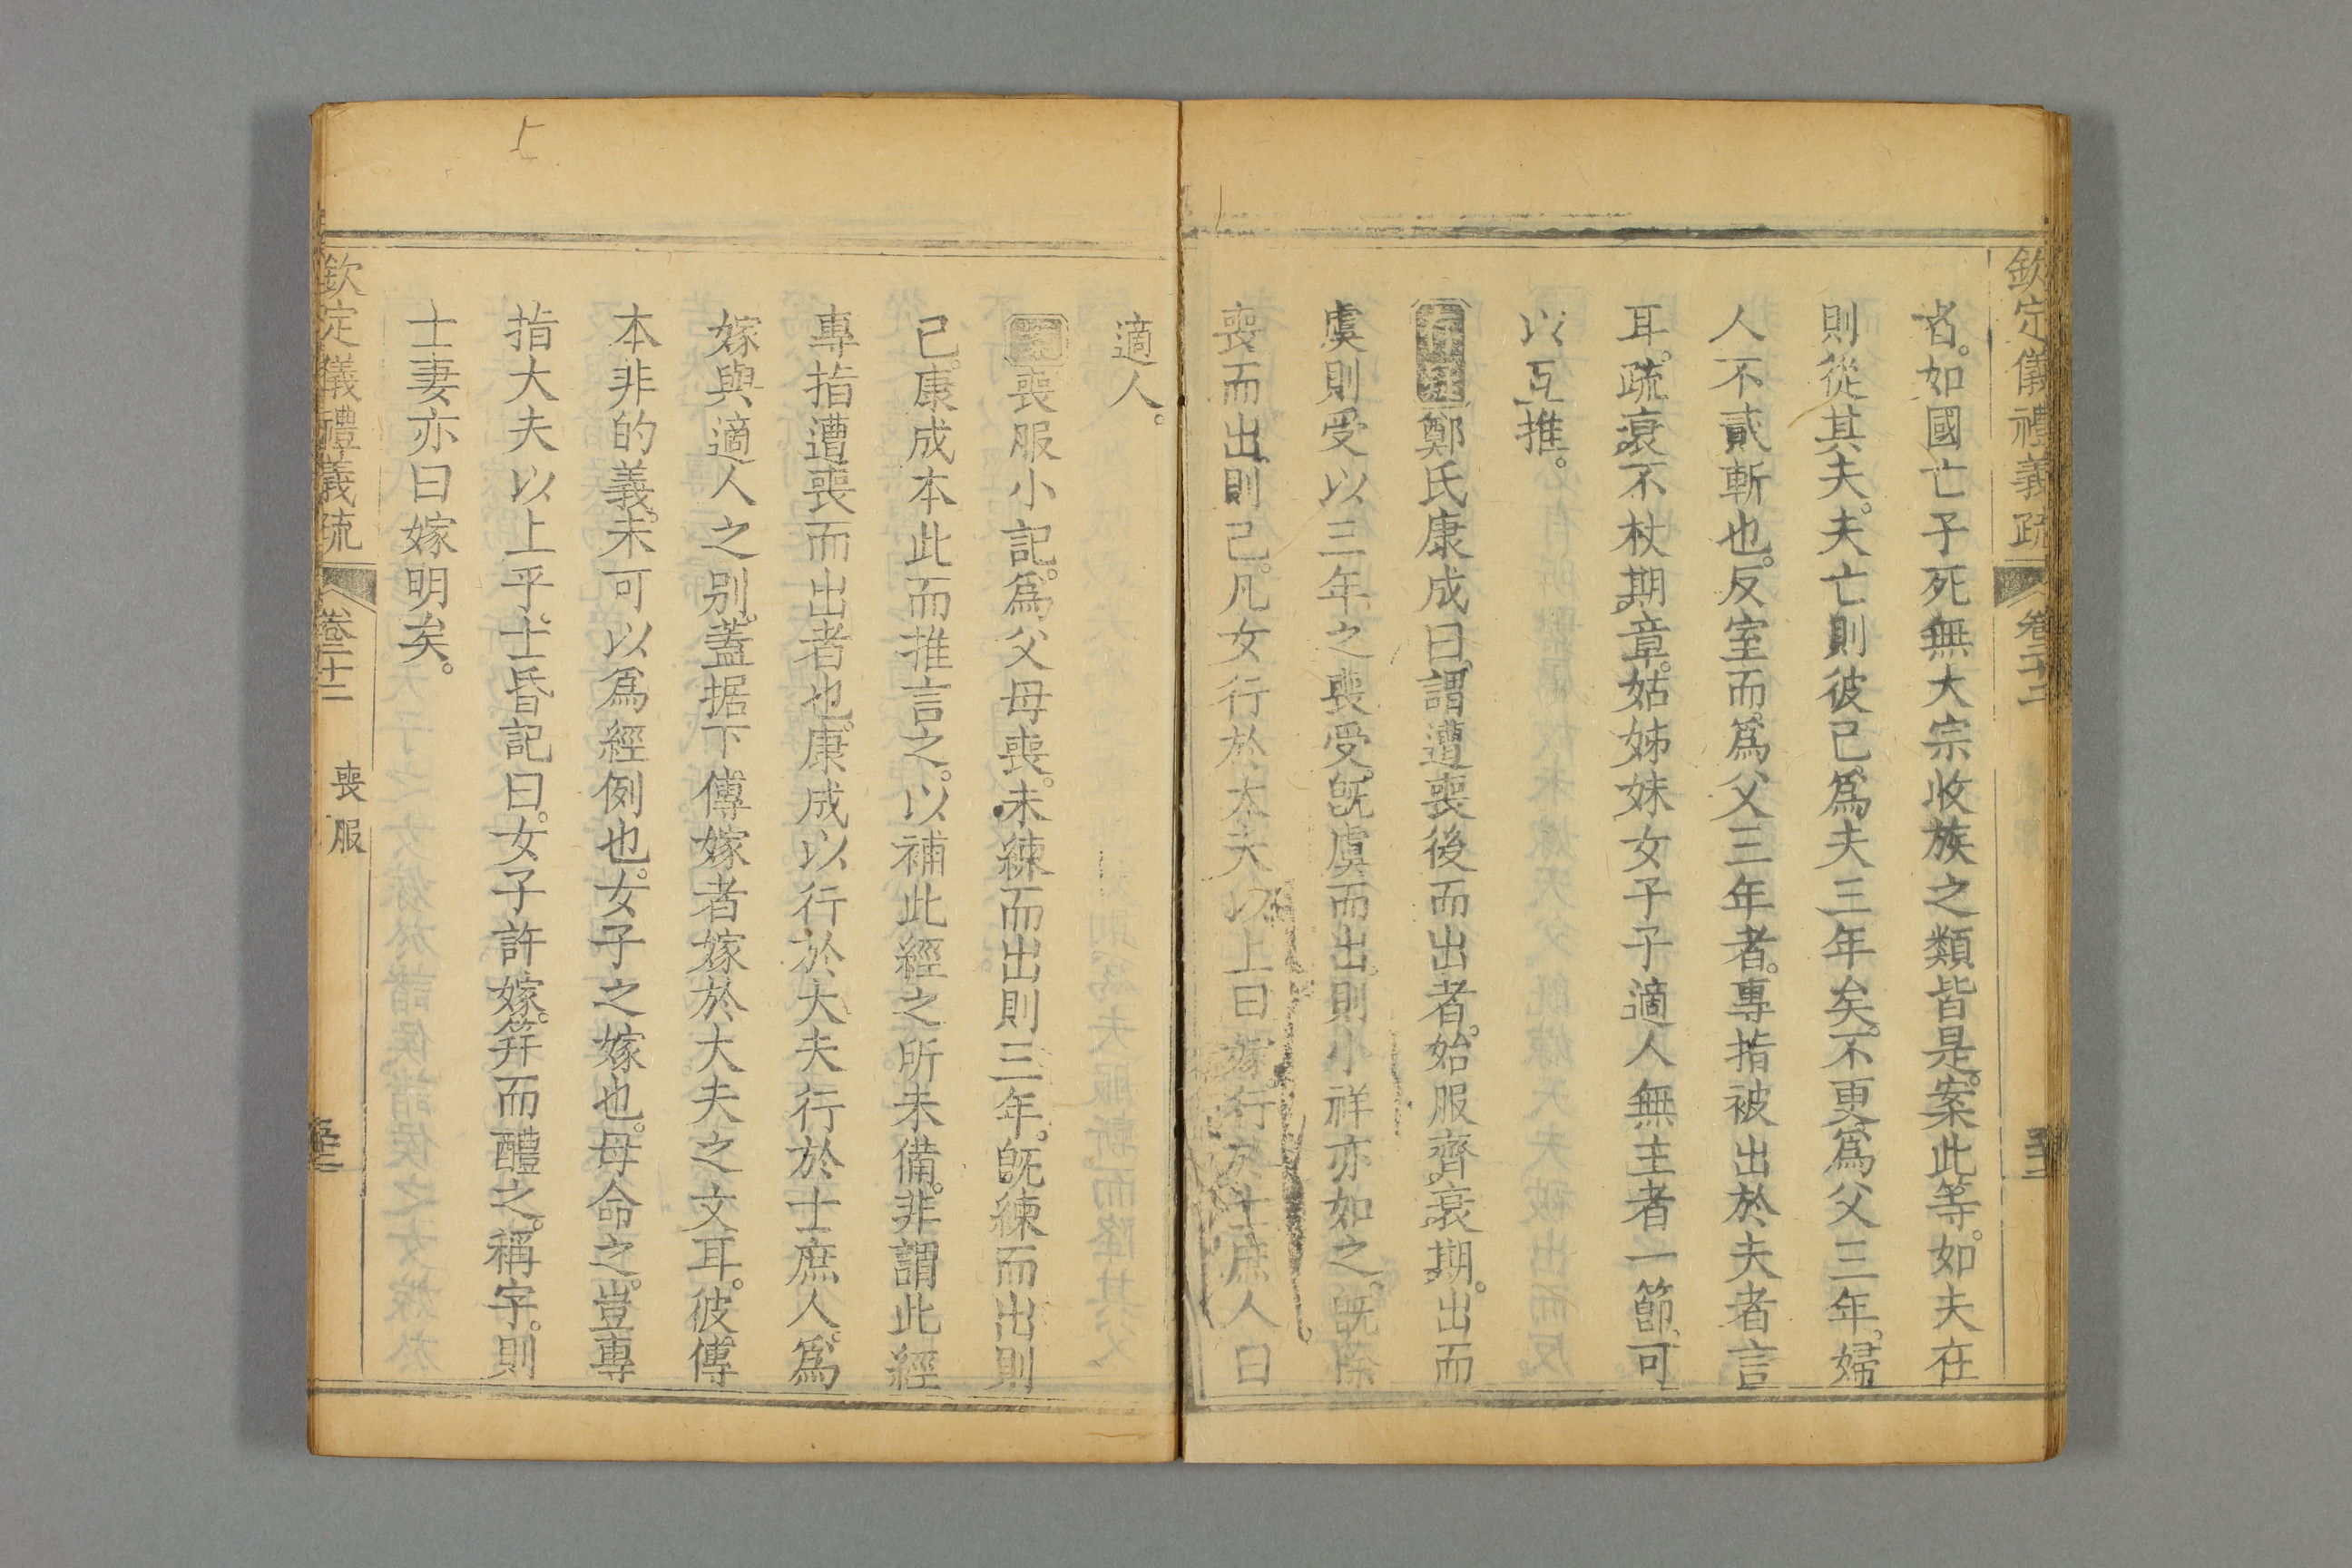 欽定儀禮義疏 卷二十二
者。如國亡子死無大宗收族之類皆是。案此等。如夫在
則從其夫。夫亡則彼已。爲夫三年矣。不更爲父三年。婦
人不貳斬也。反室而。爲父三年者。專指被出於夫者言
耳。疏衰不杖期章。姑姊妹女子子適人無主者一節。可
以互推。
鄭氏康成曰。謂遭喪後而出者。始服齊衰期。出而
虞則受以三年之喪受。旣虞而出。則小祥亦如之。旣除
喪而出。則已。凡女行於大夫以上曰嫁。行於士庶人曰
適人。
案喪服小記。爲父母喪。未練而出則三年。旣練而出則
已。康成本此而推言之。以補此經之所未備。非謂此經
專指遭喪而出者也。康成以行於大夫行於士庶人。爲
嫁與適人之别。蓋据下傳嫁者嫁於大夫之文耳。彼傳
本非的義。未可以爲經例也。女子之嫁也。母命之。豈專
指大夫以上乎。士昏記曰。女子許嫁。笄而醴之。稱字。則
士妻亦曰嫁明矣。
欽定儀禮義疏 卷二十二 喪服